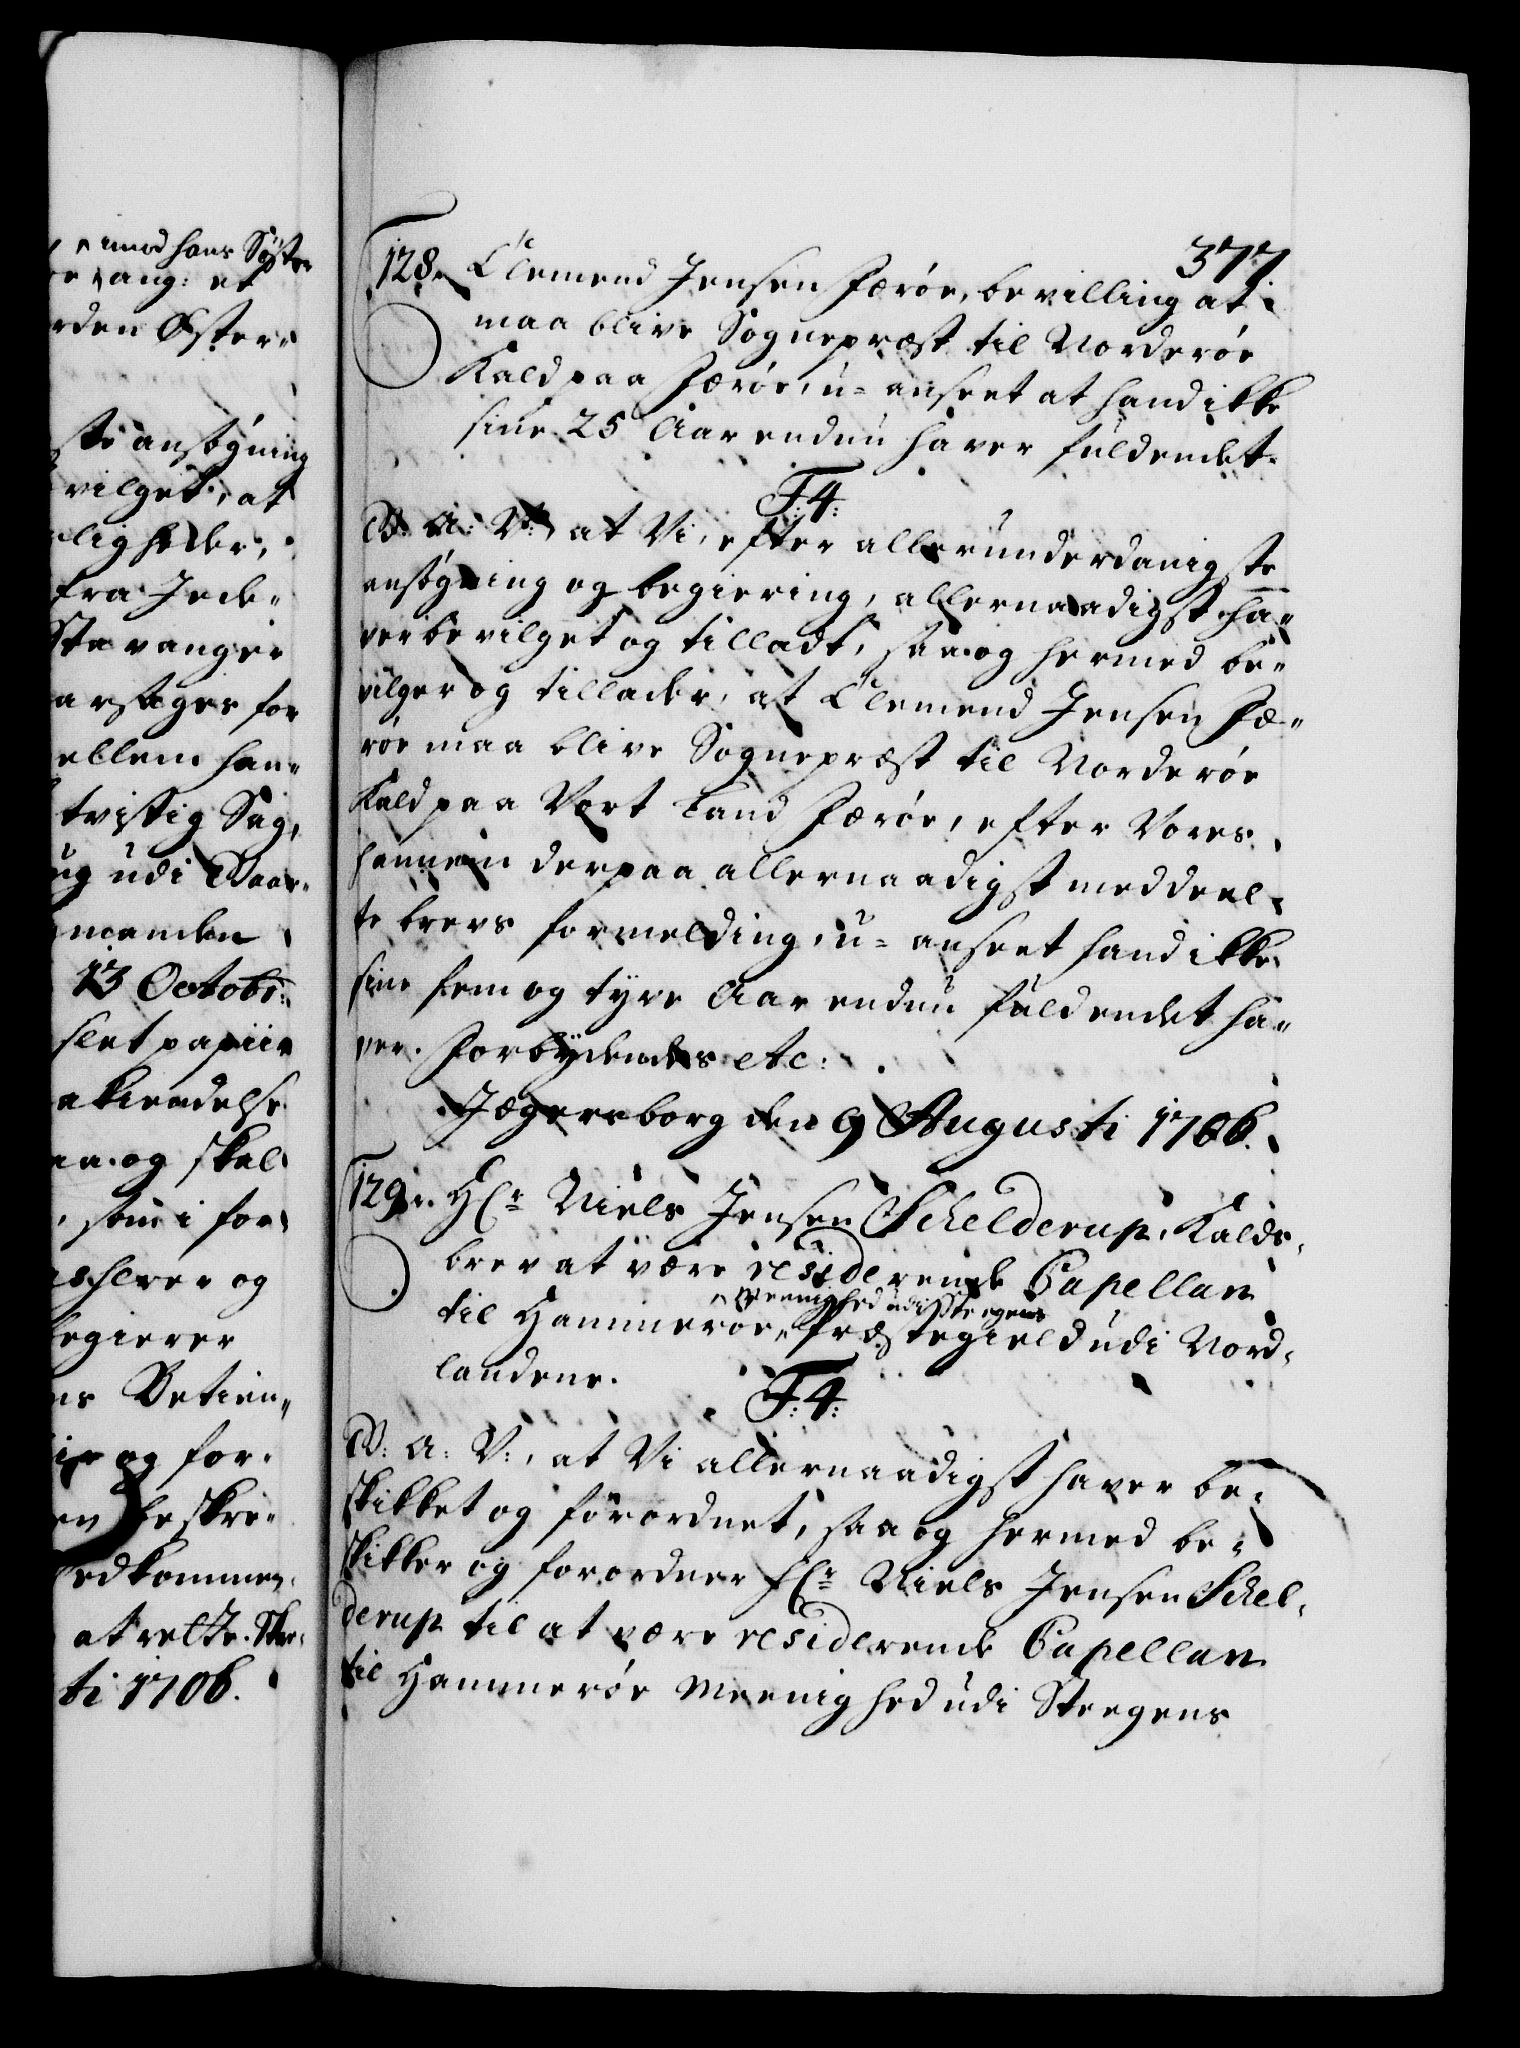 med hans Søster
ang: et
rden Øster-
ste ansøgning
vilget, at
ligheder,
fra Jede-
Stavanger
arsager for
ellem han-
tvistig Sag,
udi Baar-
manden
13 Octobr:
slet papiir
akiendelse
og skal
, som i for
og
begierer
Betien-
og for-
beskre-
edkommen-
at rette. Skre-
ti 1706.
377
128. Clemend Jensen Færøe, bevilling at
maa blive Sognepræst til Norderøe
Kald paa Færøe, u-anseet at hand ikke
sine 25 Aar endnu haver fuldendet.
F:4:
W: A: V:, at Vi, efter allerunderdanigste
ansøgning og begiering, allernaadigst ha-
ver bevilget og tilladt, saa og hermed be-
vilger og tillader, at Clemend Jensen Fæ-
røe maa blive Sognepræst til Norderøe
Kald paa Vort Land Færøe, efter Vores
hannem derpaa allernaadigst meddeel-
te brevs formelding, u-anseet hand ikke
sine fem og tyve Aar endnu fuldendet ha-
ver. Forbydendes etc:
Jægersborg den 9 Augusti 1706.
129. Hr Niels Jensen Schelderup, Kalds-
brev at være residerende Capellan
meenighed udi Steegens
til Hammerøe Præstegield udi Nord-
landene.
F:4:
W: A: V:, at Vi allernaadigst haver be-
skikket og forordnet, saa og hermed be-
skikker og forordner Hr Niels Jensen Schel-
derup til at være residerende Capellan
til Hammerøe Meenighed udi Steegens